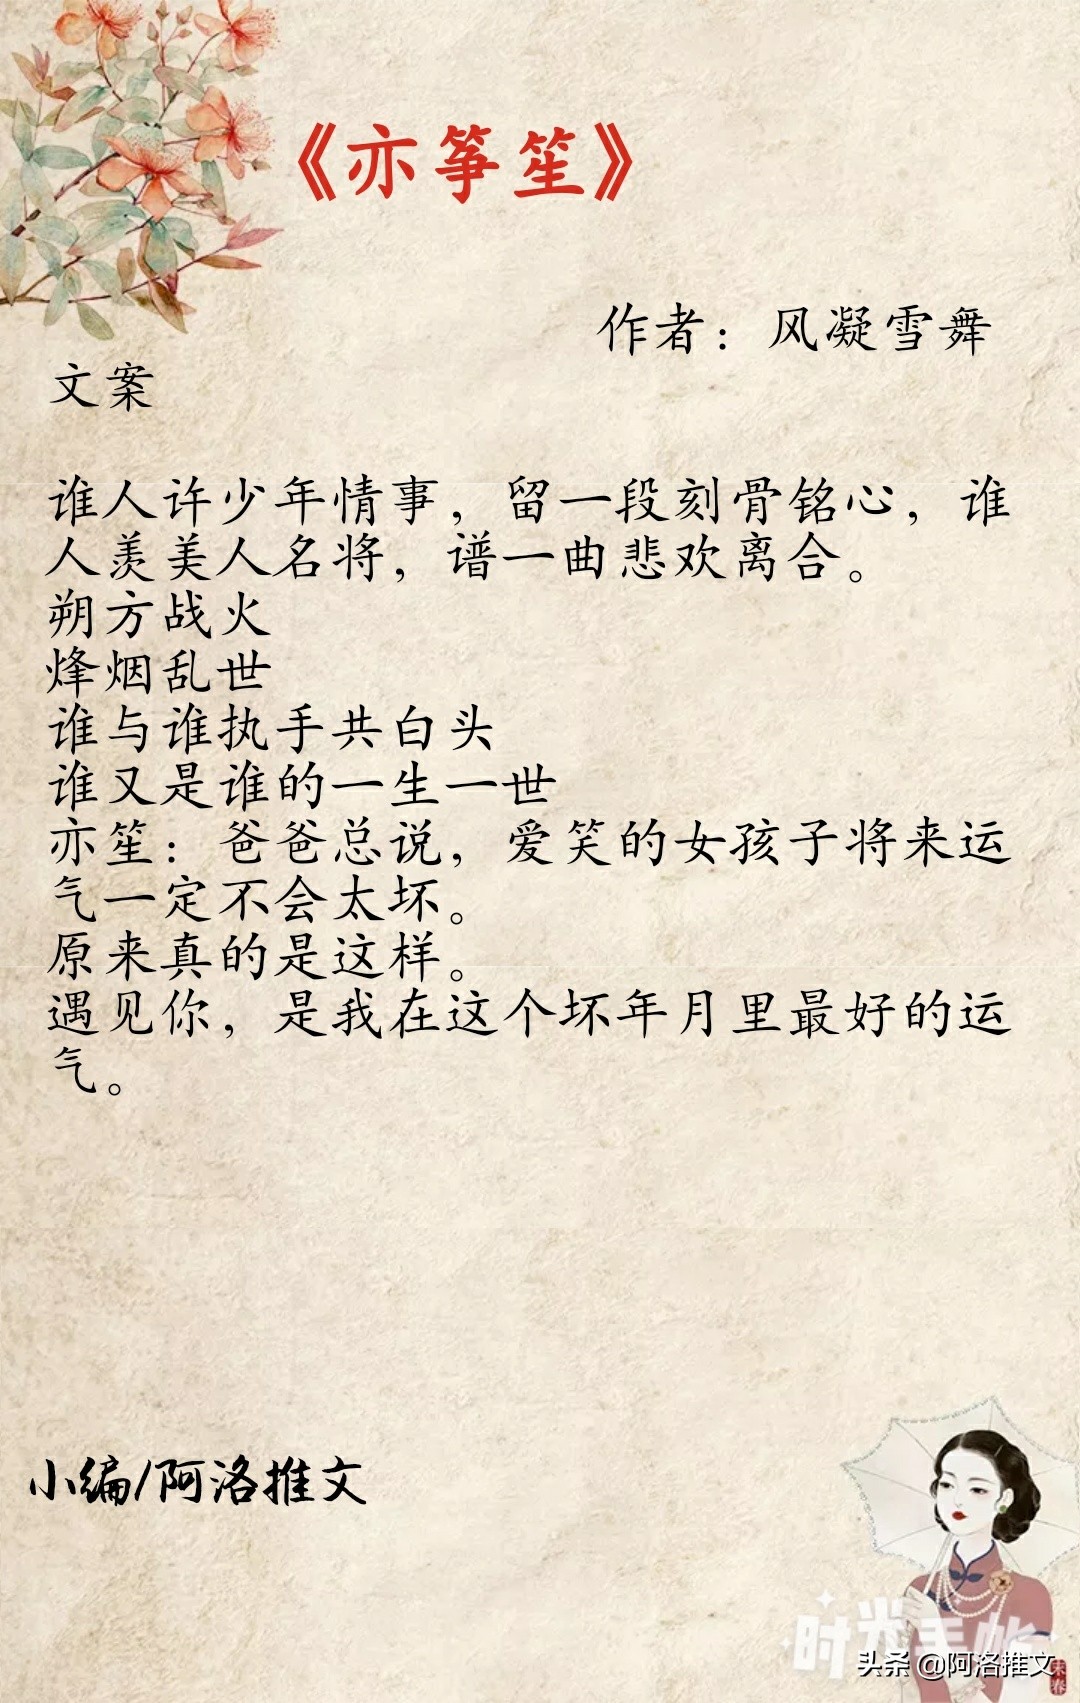 《亦筝笙》
作者：风凝雪舞
文案
谁人许少年情事，留一段刻骨铭心，谁
人羡美人名将，谱一曲悲欢离合。
朔方战火
烽烟乱世
谁与谁执手共白头
谁又是谁的一生一世
亦笙：爸爸总说，爱笑的女孩子将来运
气一定不会太坏。
原来真的是这样。
遇见你，是我在这个坏年月里最好的运
气。
小编/阿洛推文
时光手帐
头条 @阿洛推文